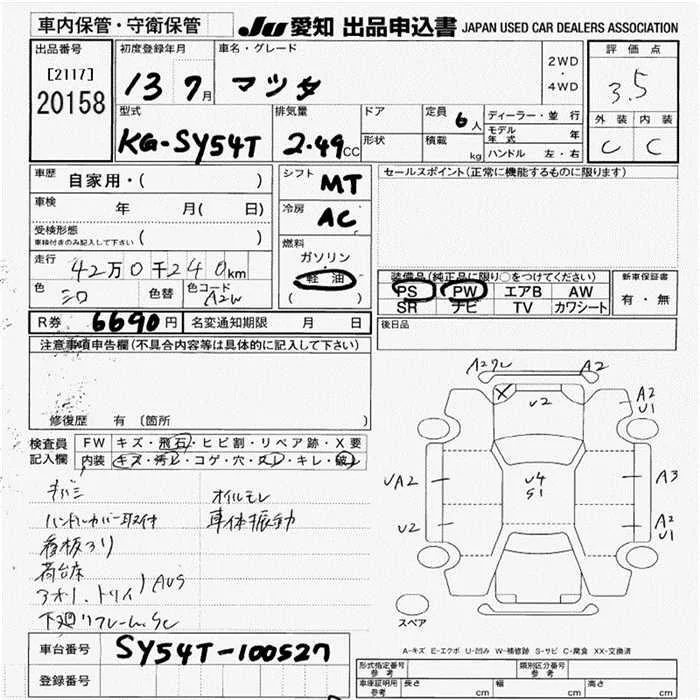 車内保管・守衛保管
JU 愛知 出品申込書 JAPAN USED CAR DEALERS ASSOCIATION
出品番号 初度登録年月 車名・グレード 2WD・4WD 評価点
[2117]
20158 13 7月 マツダ 3.5
型式 排気量 ドア 定員 6人 ディーラー・並行
KG-SY54T 2.49CC 形状 積載 kg モデル年式 年
ハンドル 左・右
外装 内装
C C
車歴 自家用・( )
車検 年 月( 日)
受検形態 ( )
車検付きのみ記入して下さい
走行 42万0千240km
色 シロ 色替 色コード A2W
シフト MT
冷房 AC
燃料
ガソリン
軽油
( )
セールスポイント(正常に機能するものに限ります)
装備品(純正品に限り○をつけてください)
PS PW エアB AW
SR ナビ TV カワシート
新車保証書
有・無
R券 6690円 名変通知期限 月 日
後日品
注意事項申告欄(不具合内容等は具体的に記入して下さい)
修復歴 有 (箇所 )
検査員 FW キズ・飛石・ヒビ割・リペア跡・X要
記入欄 内装 キズ・汚レ・コゲ・穴・スレ・キレ・破レ
ハンドルカバー取付
看板アリ
荷台床
オイルモレ
車体振動
A2 A2
X U2 A2
U1
UA2 U4 A3
S1
U2 A2
U1
スペア
A-キズ E-エクボ U-凹み W-補修跡 S-サビ C-腐食 XX-交換済
車台番号 SY54T-100527
登録番号
形式指定番号 参考 類別区分番号 参考
車庫証明用 参考 長さ cm 幅 cm 高さ cm